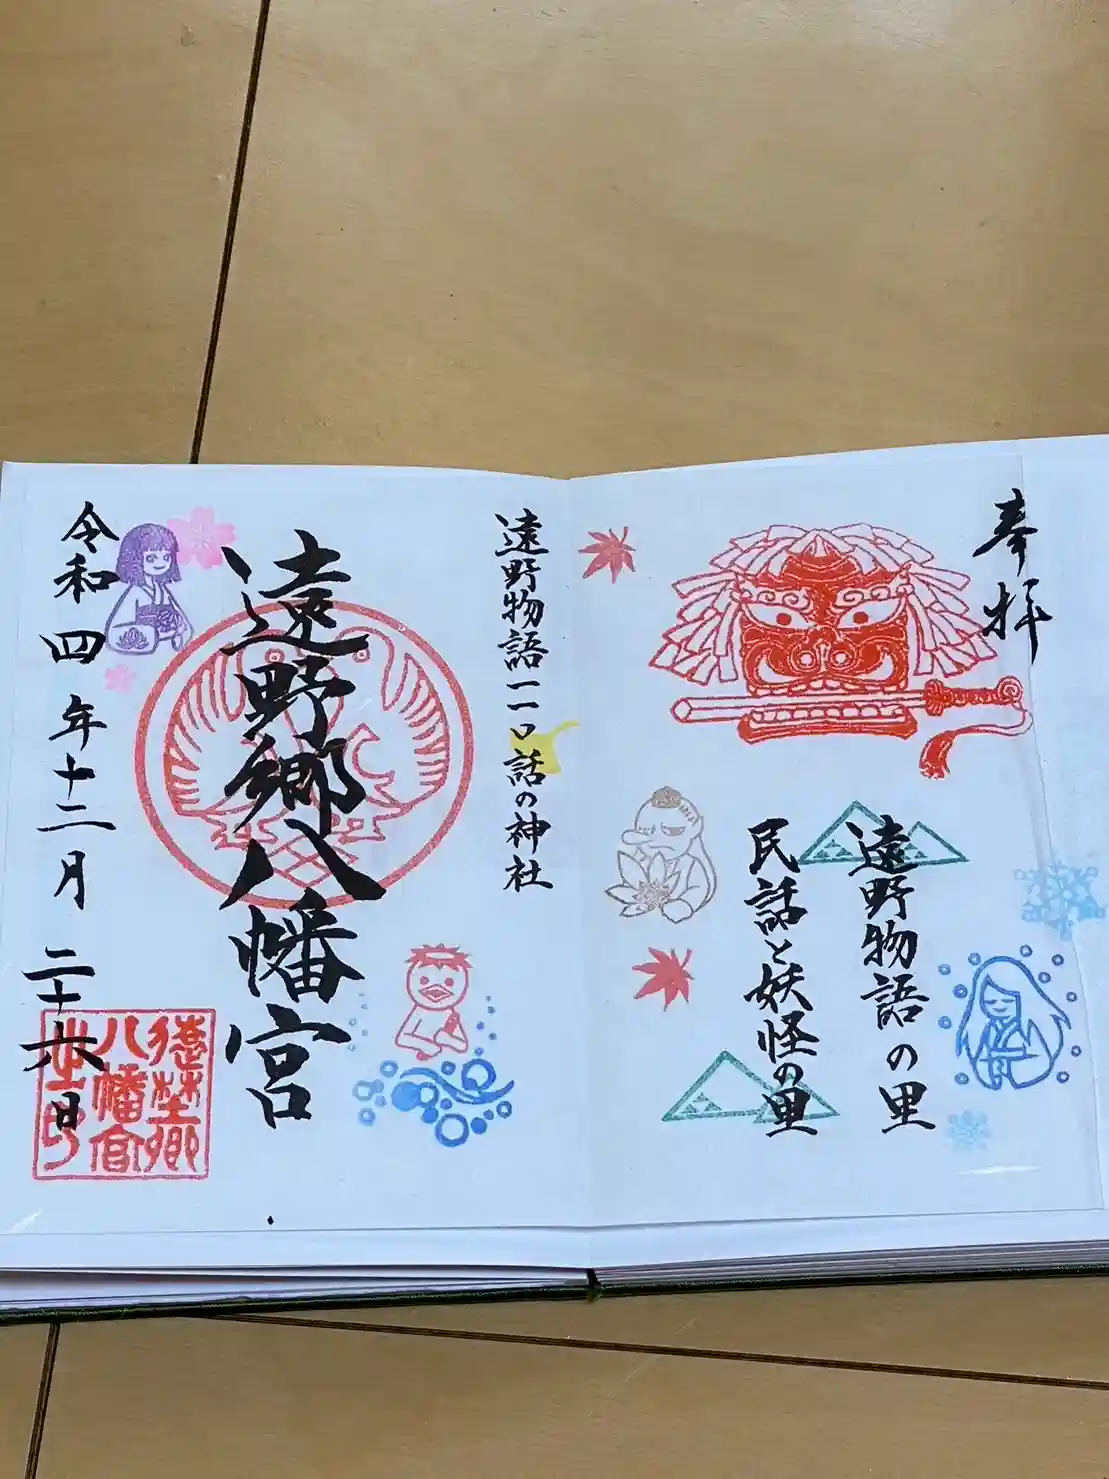 奉拝
遠野物語の里
民話と妖怪の里
遠野物語一一〇話の神社
遠野郷八幡宮
令和四年十二月二十六日
遠野郷
八幡宮